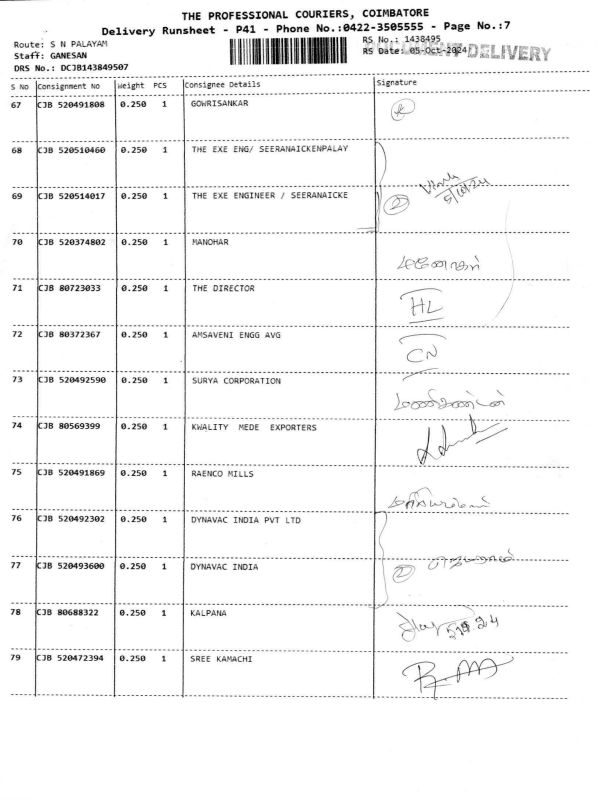 THE PROFESSIONAL COURIERS, COIMBATORE
Delivery Runsheet - P41 - Phone No.:0422-3505555 - Page No.:7
Route: S N PALAYAM
RS No.: 1438495
Staff: GANESAN
RS Date: 05-Oct-2024
DELIVERY
DRS No.: DCJB143849507
S No Consignment No Weight PCS Consignee Details Signature
67 CJB 520491808 0.250 1 GOWRISANKAR
68 CJB 520510460 0.250 1 THE EXE ENG/ SEERANAICKENPALAY
69 CJB 520514017 0.250 1 THE EXE ENGINEER / SEERANAICKE 2
5/10/24
70 CJB 520374802 0.250 1 MANOHAR மனோகர்
71 CJB 80723033 0.250 1 THE DIRECTOR HL
72 CJB 80372367 0.250 1 AMSAVENI ENGG AVG CN
73 CJB 520492590 0.250 1 SURYA CORPORATION மணிகண்டன்
74 CJB 80569399 0.250 1 KWALITY MEDE EXPORTERS
75 CJB 520491869 0.250 1 RAENCO MILLS
76 CJB 520492302 0.250 1 DYNAVAC INDIA PVT LTD
77 CJB 520493600 0.250 1 DYNAVAC INDIA 2
78 CJB 80688322 0.250 1 KALPANA
79 CJB 520472394 0.250 1 SREE KAMACHI